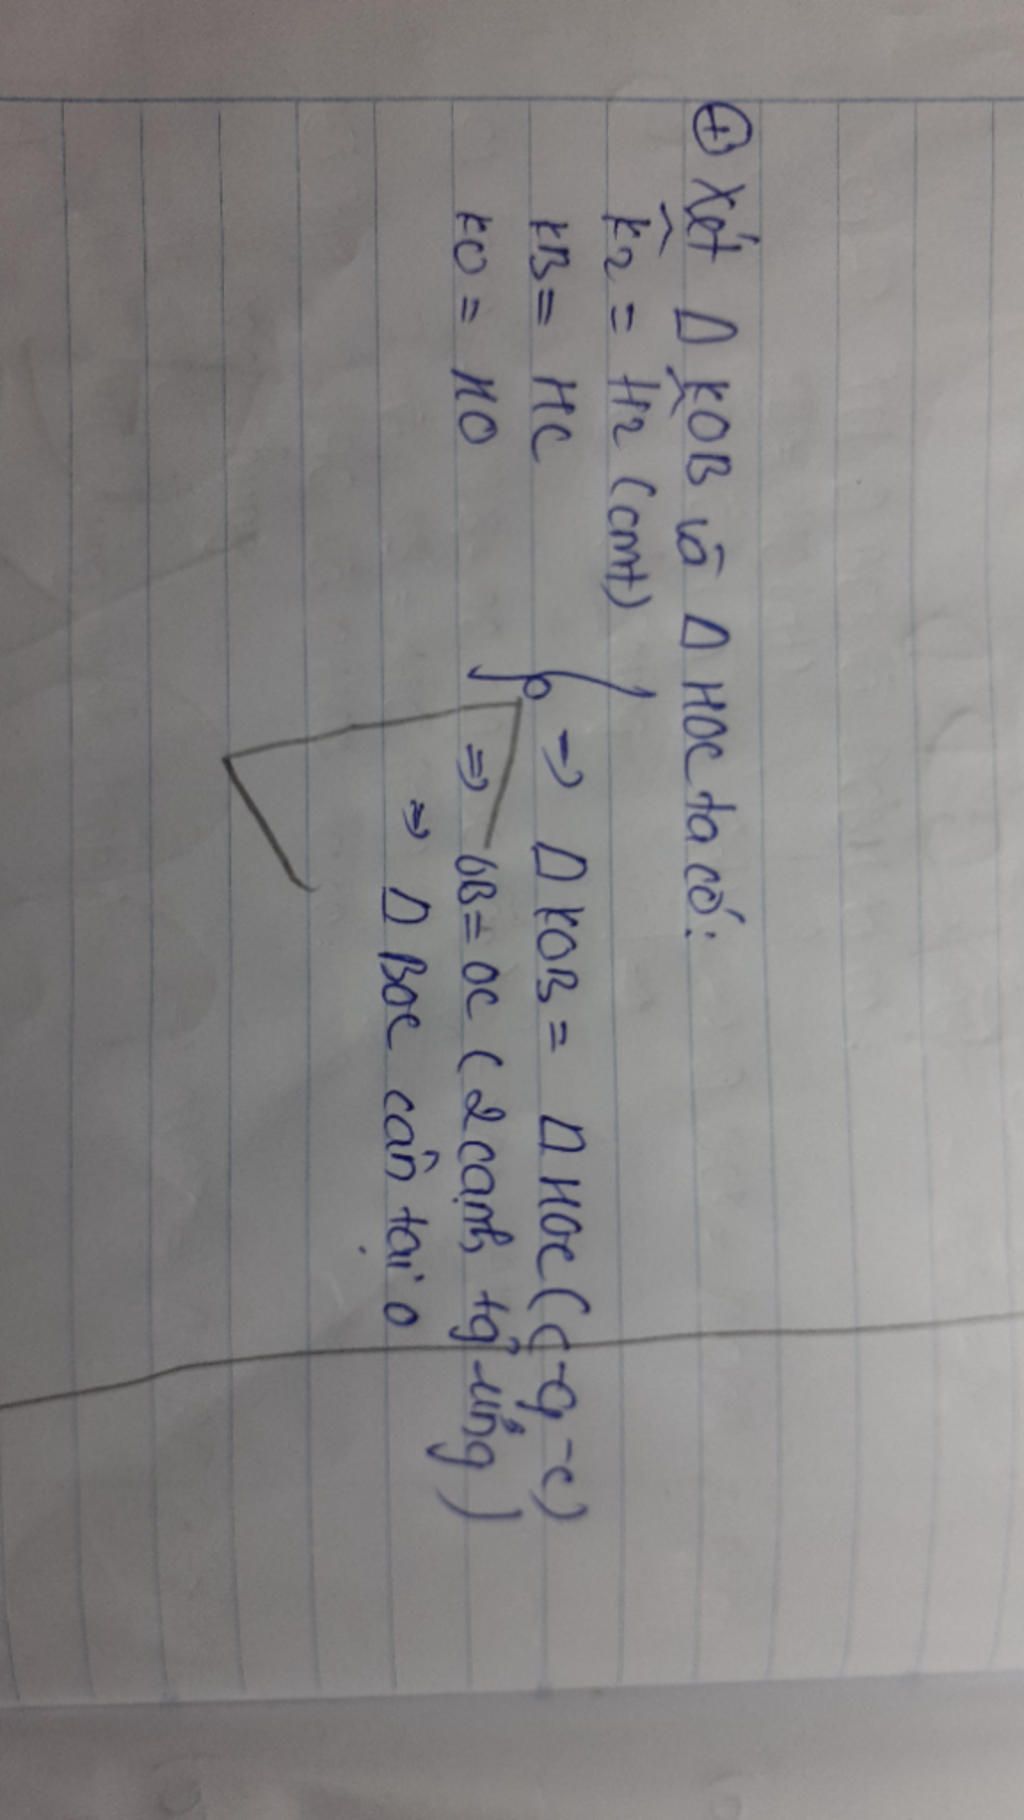 ⊕ Xét Δ KOB và Δ HOC ta có:
K̂2 = Ĥ2 (cmt)
KB = HC
KO = HO
=> Δ KOB = Δ HOC (c-g-c)
=> OB = OC (2 cạnh tg ứng)
=> Δ BOC cân tại O